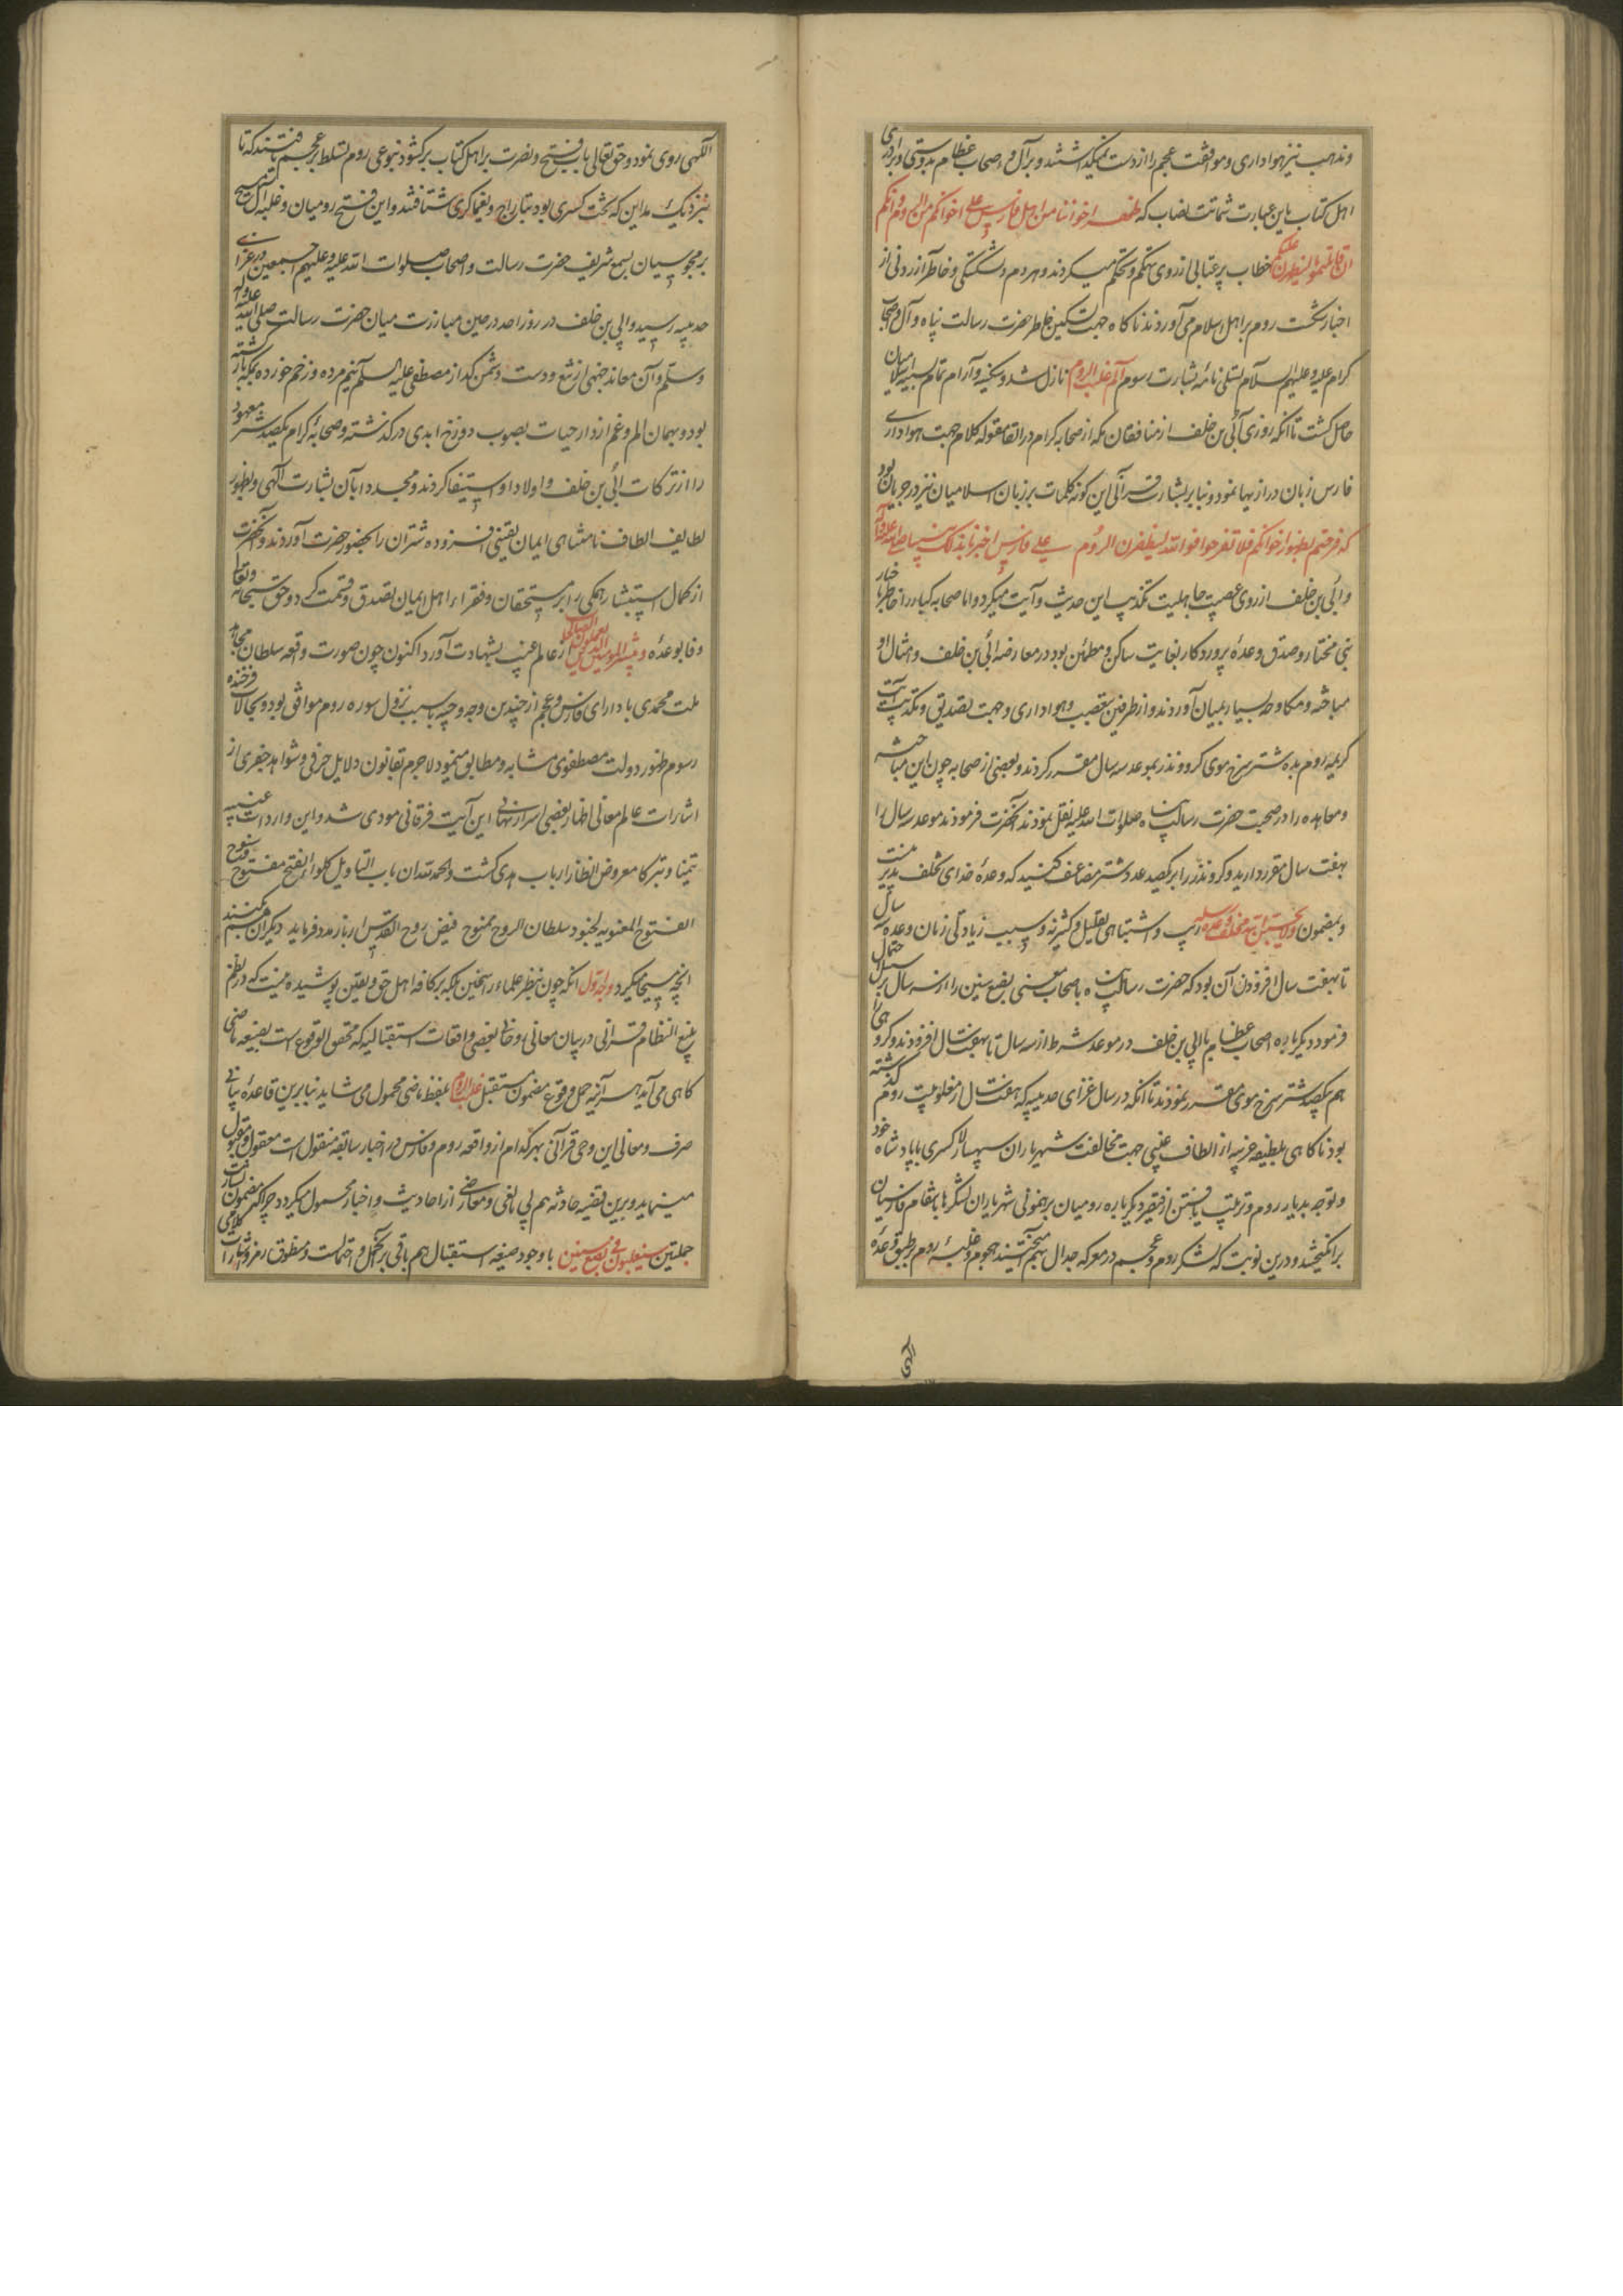 و مذهب نیز هواداری و موافقت عجم را از دست نمیگذاشتند و بر آل و اصحاب عظام بدوستی و برادری
اهل کتاب باین عبارت شماتت نصاب که ظهر اخواننا من اهل فارس علی اخوانکم من الروم و انکم
ان قاتلتمونا لنظهرن علیکم خطاب پر عتابی از روی تهکم و تحکم میکردند و هر دم دلشکستگی و خاطر آزردنی از
اخبار شکست روم بر اهل اسلام می‌آوردند تا ناکاه جهت تسکین خاطر حضرت رسالت پناه و آل و اصحاب
کرام علیه و علیهم السلام تسلی نامه بشارت رسوم الم غلبت الروم نازل شد و سکینه و آرام تمام بسینه اسلامیان
حاصل کشت تا آنکه روزی ابی بن خلف از منافقان مکه از صحابه کرام در اتفا مقوله کلام جهت هواداری
فارس زبان درازیها نمود و بنا بر بشارت قرآنی این کونه کلمات بر زبان اسلامیان نیز در جریان بود
که فرحتم بظهور اخوانکم فلا تفرحوا فوالله لیظهرن الروم علی فارس اخبرنا بذلک نبینا صلی الله علیه و آله
و ابی بن خلف از روی عصبیت جاهلیت تکذیب این حدیث و آیت میکرد و اما صحابه کبار را خاطر باخبار
نبی مختار و صدق وعدهٔ پروردکار بغایت ساکن و مطمئن بود در معارضهٔ ابی بن خلف و امثال او
مباحثه و مکاوحه بسیار بمیان آوردند و از طرفین تعصب و هواداری و جهت تصدیق و تکذیب آیت
کریمه روم بده شتر سرخ موی کرو و نذر بموعد سه سال مقرر کردند و بعضی از صحابه چون این مباحثه
و معاهده را در صحبت حضرت رسالت پناه صلوات الله علیه نقل نمودند آنحضرت فرمودند موعد سه سال را
بهفت سال مقرر دارید و کرو نذر را بر یکصد عدد شتر مضاعف کنید که وعدهٔ خدای تخلف پذیر نیست
و بمضمون ولا تحسبن الله مخلف وعده رسله ریب و اشتباهی بقلیل و کثیر نه و سبب زیادتی زمان وعده سه سال
تا بهفت سال افزودن آن بود که حضرت رسالت پناه باصحاب معنی بضع سنین را از سه سال بر احتمال
فرمود دیکرباره اصحاب عظام با ابی بن خلف در موعد شرط از سه سال تا بهفت سال افزودند و کرو
هم یکصد شتر سرخ موی مقرر نمودند تا آنکه در سال غزای حدیبیه که هفت سال از مغلوبیت روم کذشته
بود ناکاهی بلطیفه غریبه از الطاف غیبی جهت مخالفت شهریاران سپهسالار کسری با پادشاه خود
و توجه بدیار روم و تربیت یافتن از قیصر دیکرباره رومیان برهنمونی شهریاران لشکرها بانتقام فارسیان
برانکیختند و درین نوبت که لشکر روم و عجم در معرکه جدال بهم آمیختند هجوم و غلبهٔ روم بر طبق وعدهٔ
الهی
الهی روی نمود و حق تعالی باب فتح و نصرت بر اهل کتاب برکشود بنوعی روم تسلط بر عجم یافتند که تا
نزدیک مداین که تخت کسری بود بتاراج و یغماکری شتافتند و این فتح رومیان و غلبه آل مسیح
بر مجوسیان بسمع شریف حضرت رسالت و اصحاب صلوات الله علیه و علیهم اجمعین در غزای
حدیبیه رسید و ابی بن خلف در روز احد در حین مبارزت میان حضرت رسالت صلی الله علیه و آله
و سلم و آن معاند جهنمی از تیغ دوست و دشمن کداز مصطفی علیه السلم نیم مرده و زخم خورده بمکه باز کشته
بود و بهمان الم و غم از دار حیات بصوب دوزخ ابدی درکذشته و صحابهٔ کرام یکصد شتر معهود
را از ترکات ابی بن خلف و اولاد او استیفا کردند و مجدد ابان بشارت الهی و ظهور
لطایف الطاف نامتناهی ایمان یقینی افزوده شتران را بحضور حضرت آوردند و آنحضرت
از کمال استبشار همکی را بر مستحقان و فقراء اهل ایمان تصدق و قسمت کرد و حق سبحانه و تعالی
وفا بوعده و یبشر المومنین الذین یعملون الصالحات از عالم غیب بشهادت آورد اکنون چون صورت واقعه سلطان مجاهد
ملت محمدی با دارای فارس و عجم از چندین وجه وجیه با سبب نزول سوره روم موافق بود و بحالات فرخنده
رسوم ظهور دولت مصطفوی مشابه و مطابق مینمود لاجرم بقانون دلایل حرفی و شواهد جفری از
اشارات عالم معانی اظهار بعضی اسرار نهانی این آیت فرقانی مودی شد و این واردات غیبیه
تیمنا و تبرکا معروض انظار ارباب هدی کشت و الحمد لله ان باب التاویل کلوا بفتح مفتوح
الفتوح المعنویه لجنود سلطان الروح ممنوح فیض روح القدس ار باز مدد فرماید دیکران هم بکنند
آنچه مسیحا میکرد وجه اول آنکه چون بنظر علماء راسخین بلکه بر کافه اهل حق و یقین پوشیده نیست که در نظم
بلیغ انتظام قرآنی در بیان معانی و خفایا بعضی واقعات استقبالیه که محقق الوقوع است بصیغه ماضی
کاهی می‌آید هر آینه حمل وقوع مضمون مستقبل غلبت الروم بلفظ ماضی محمول می‌شاید بنا برین قاعدهٔ بیانی
صرف و معانی این وحی قرآنی بهر کدام از واقعه روم و فارس در اخبار سابقه منقول است معقول و مقبول
مینماید و برین قضیه حادثه هم بی مانعی و معارضی از احادیث و اخبار محمول میکردد چرا که مضمون بشارت
جملتین سیغلبون فی بضع سنین با وجود صیغه استقبال هم باقی بر محمل و احتمالست و منطوق رمز و اشارات